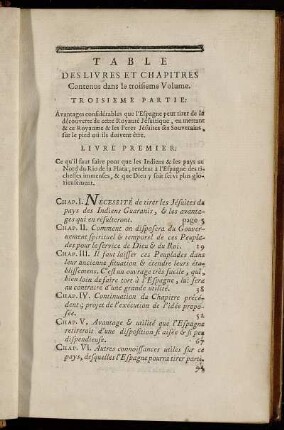 TABLE
DES LIVRES ET CHAPITRES
Contenus dans le troisieme Volume.
TROISIEME PARTIE:
Avantages considérables que l'Espagne peut tirer de la
découverte de cette Royauté Jésuitique, en mettant
& ce Royaume & les Peres Jésuites ses Souverains,
sur le pied où ils doivent être.
LIVRE PREMIER:
Ce qu'il faut faire pour que les Indiens & les pays au
Nord du Rio de la Plata, rendent à l'Espagne des ri-
chesses immenses, & que Dieu y soit servi plus glo-
rieusement.
CHAP. I. NÉCESSITÉ de tirer les Jésuites du
pays des Indiens Guaranis, & les avanta-
ges qui en résulteront. page 5
CHAP. II. Comment on disposera du Gouver-
nement spirituel & temporel de ces Peupla-
des pour le service de Dieu & du Roi. 19
CHAP. III. Il faut laisser ces Peuplades dans
leur ancienne situation & étendre leurs éta-
blissemens. C'est un ouvrage très facile, qui,
bien loin de faire tort à l'Espagne, lui sera
au contraire d'une grande utilité. 38
CHAP. IV. Continuation du Chapitre précé-
dent; projet de l'exécution de l'idée propo-
sée. 52
CHAP. V. Avantage & utilité que l'Espagne
retireroit d'une disposition si aisée & si peu
dispendieuse. 67
CHAP. VI. Autres connoissances utiles sur ce
pays, desquelles l'Espagne pourra tirer parti.